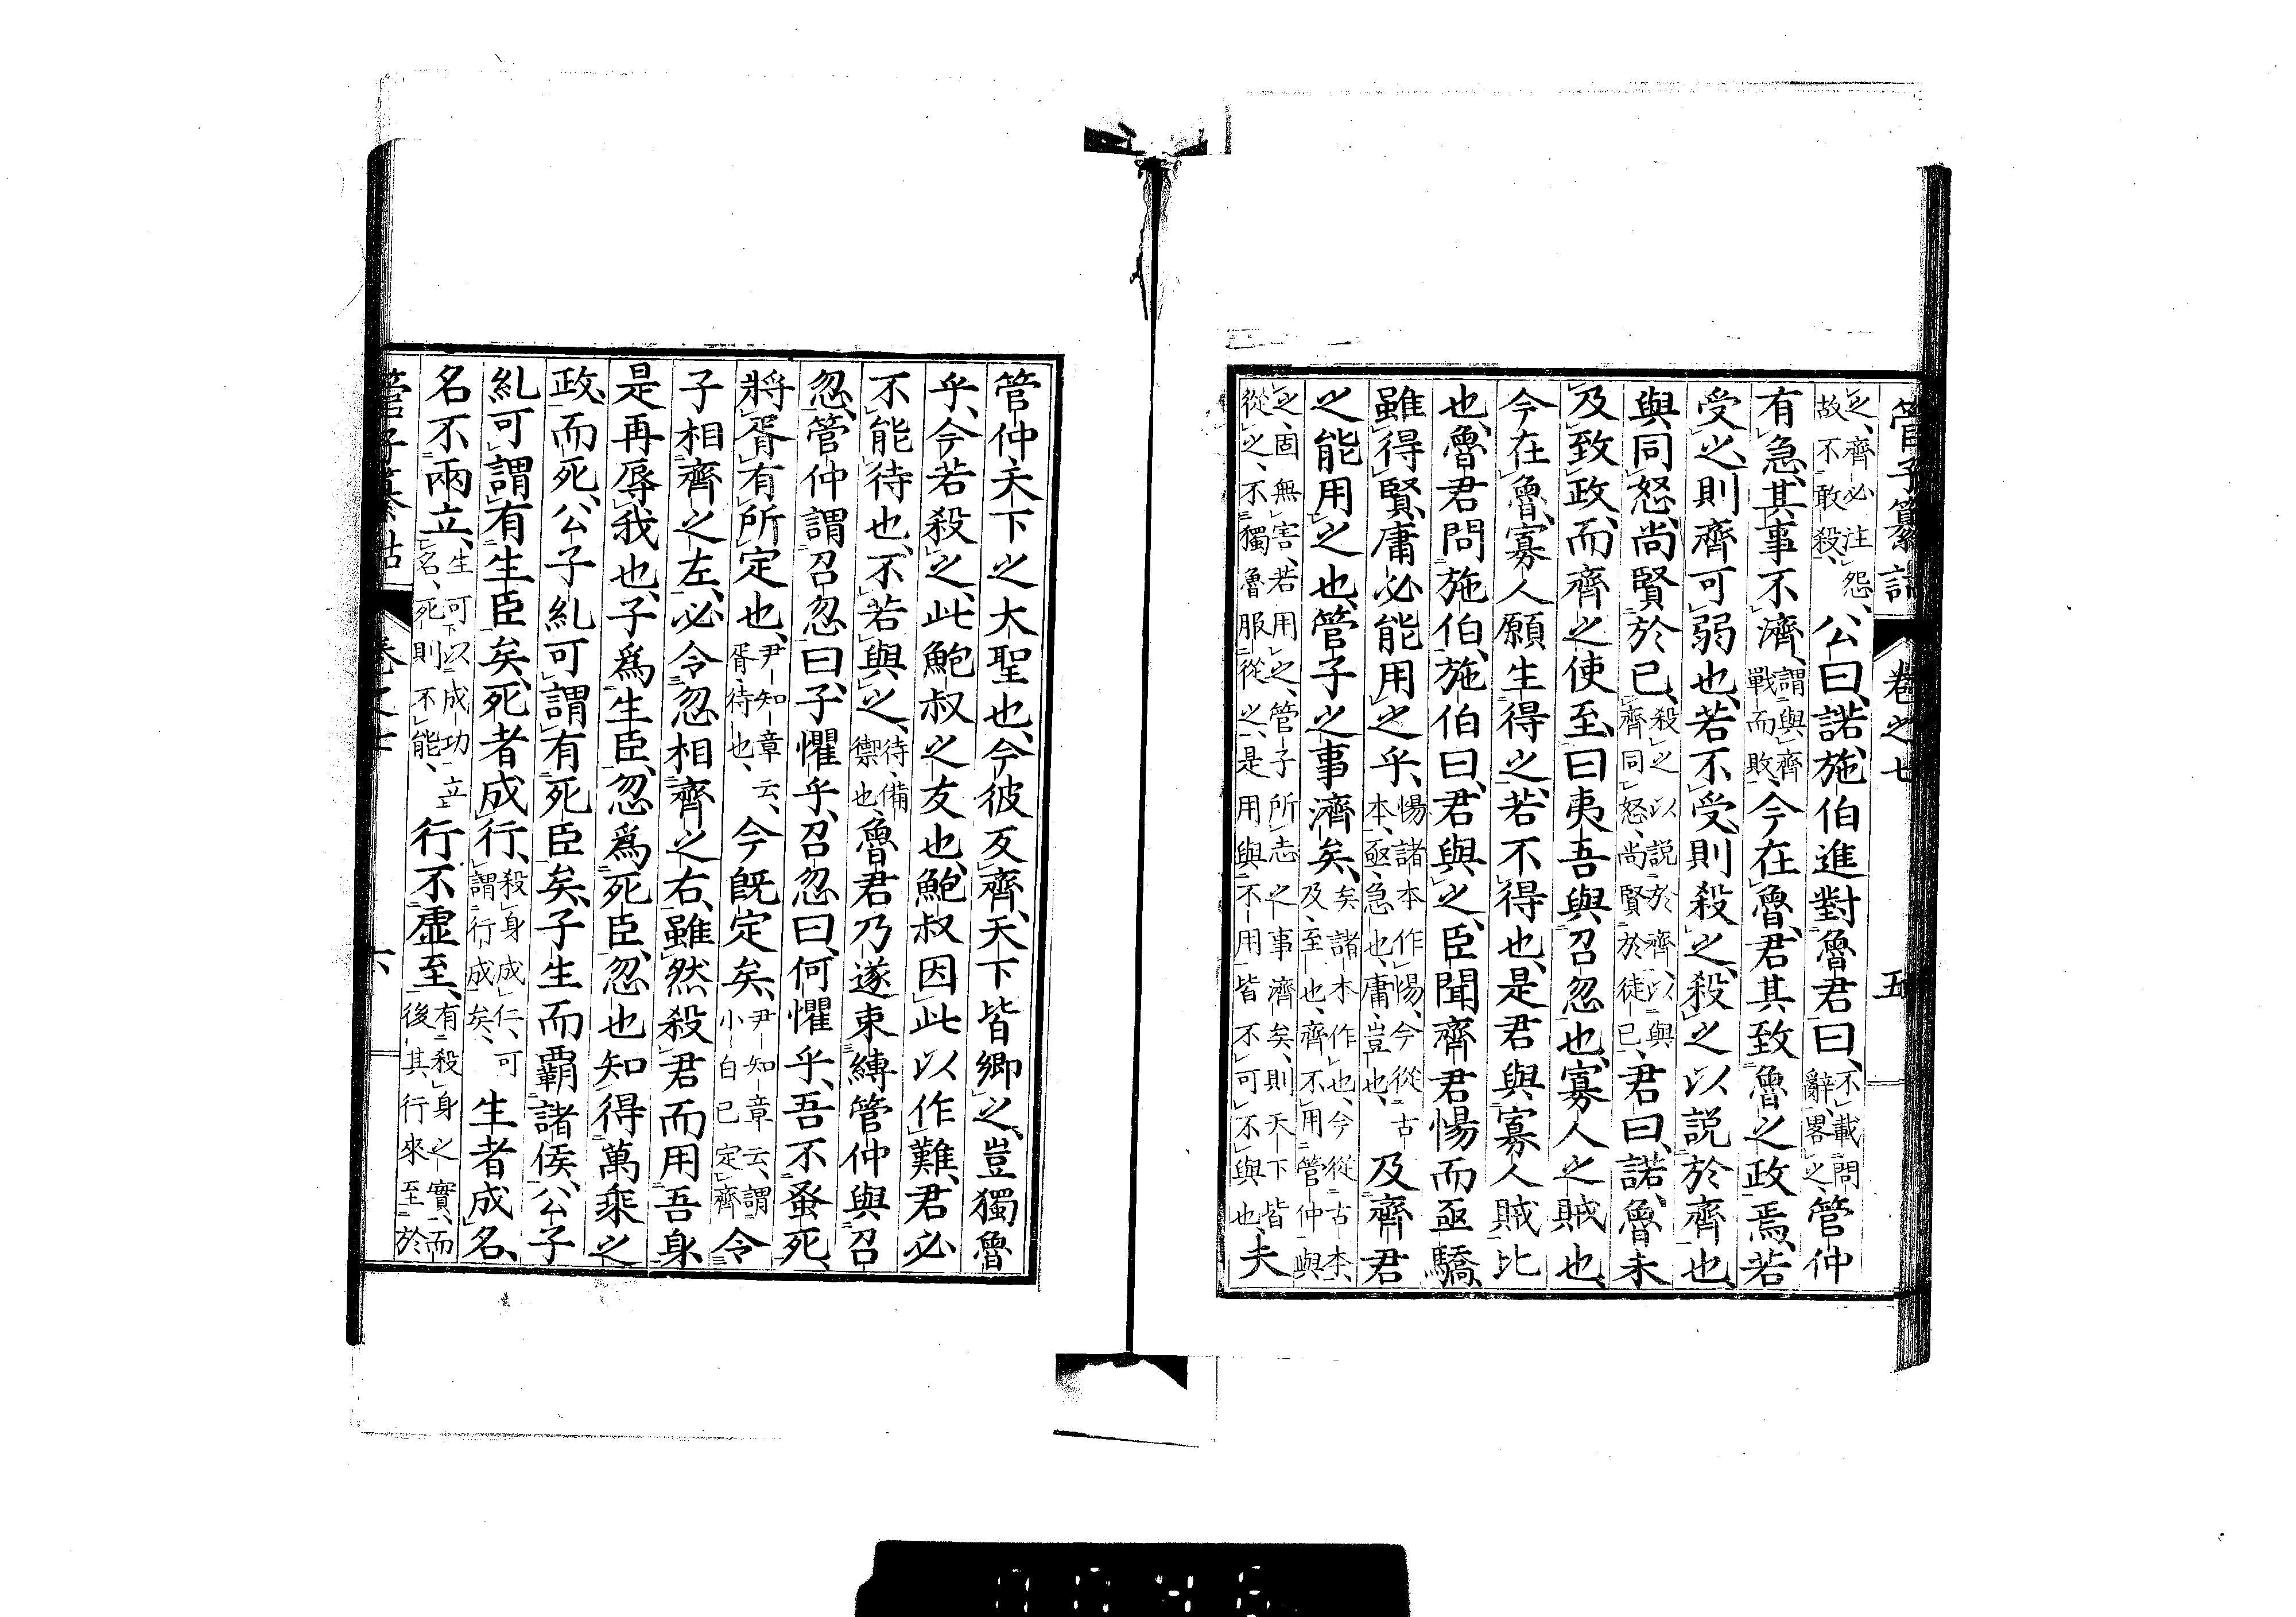 管子纂詁 卷之七 五
之、齊必注怨、故不敢殺、公曰、諾、施伯進對魯君曰、不載問辭、畧之、管仲
有急、其事不濟、謂與齊戰而敗、今在魯、君其致魯之政焉、若
受之、則齊可弱也、若不受、則殺之、殺之以説於齊也、
與同怒、尚賢於已、殺之以説於齊、以與齊同怒、尚賢於徒已、君曰、諾、魯未
及致政、而齊之使至、曰夷吾與召忽也、寡人之賊也、
今在魯、寡人願生得之、若不得也、是君與寡人賊比
也、魯君問施伯、施伯曰、君與之、臣聞齊君惕而亟驕、
雖得賢、庸必能用之乎、惕諸本作愓、今從古本、亟、急也、庸、豈也、及齊君
之能用之也、管子之事濟矣、矣諸本作也、今從古本、及、至也、齊不用管仲與
之、固無害、若用之、管子所志之事濟矣、則天下皆從之、不獨魯服從之、是用與不用皆不可不與也、夫
管仲天下之大聖也、今彼反齊、天下皆鄉之、豈獨魯
乎、今若殺之、此鮑叔之友也、鮑叔因此以作難、君必
不能待也、不若與之、待、備禦也、魯君乃遂束縛管仲與召
忽、管仲謂召忽曰、子懼乎、召忽曰、何懼乎、吾不蚤死、
將胥有所定也、尹知章云、胥、待也、今既定矣、尹知章云、謂小白已定齊、令
子相齊之左、必令忽相齊之右、雖然殺君而用吾身、
是再辱我也、子爲生臣、忽爲死臣、忽也知得萬乘之
政、而死、公子糺可謂有死臣矣、子生而霸諸侯、公子
糺可謂有生臣矣、死者成行、殺身成仁、可謂行成矣、生者成名、
名不兩立、生可以成功立名、死則不能、行不虛至、有殺身之實、而後其行來至於
管子纂詁 卷之七 六